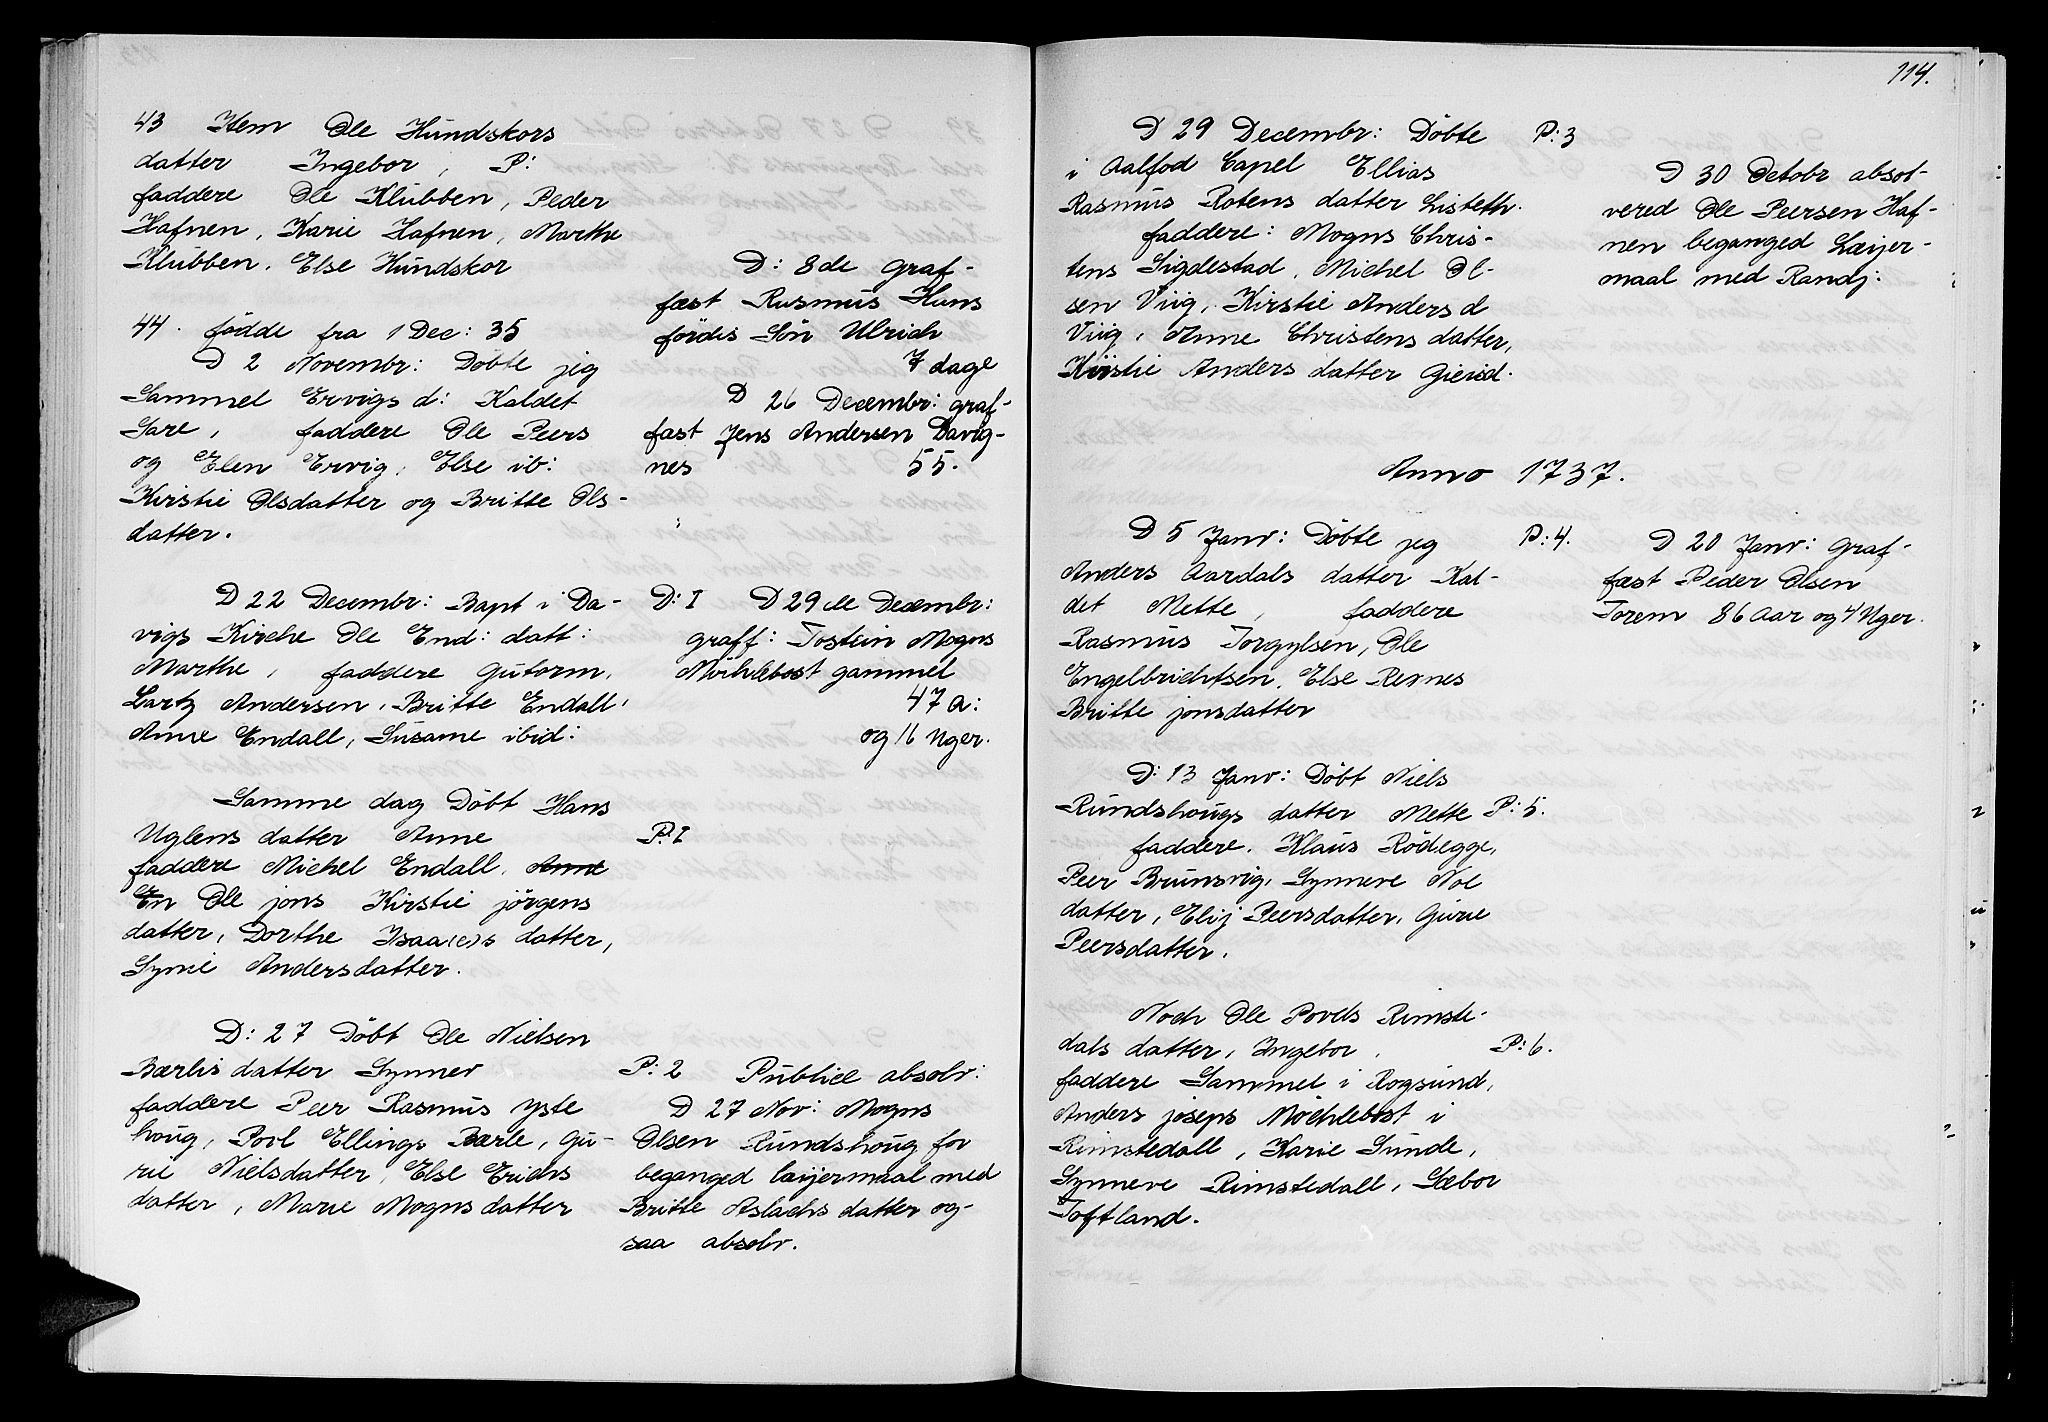 43 Item Ole Hundskors
datter Ingebor, P:
faddere Ole Klubben, Peder
Hafnen, Karie Hafnen, Marthe
Klubben. Else Hundskor
44. fødde fra 1 Dec: 35
D 2 Novembr: Døbte jeg
Sammel Ervigs d: Kaldet
Sare, faddere Ole Peers
og Elen Ervig, Else ib:
Kirstie Olsdatter og Britte Ols-
datter.
D 22 Decembr: Bapt i Da-
vigs Kirche Ole End: datt:
Marthe, faddere Gutorm,
Lartz Andersen, Britte Endall,
Anne Endall, Susame ibid:
Samme dag Døbt Hans
Uglens datter Anne
faddere Michel Endall, Anne
En Ole jons Kirstie jørgens
datter, Dorthe Isaa(c)s datter,
Synie Andersdatter.
D: 27 Døbt Ole Nielsen
Bærlis datter Synner
faddere Peer Rasmus yste
houg, Povl Ellings Bærle, Gu-
rie Nielsdatter, Else Erichs
datter, Marie Mogns datter
D: 8de Graf-
fæst Rasmus Hans
fördes Søn Ulrich
7 dage
D 26 Decembr: graf-
fast Jens Andersen Davig-
nes 55.
D: I D 29de Decembr:
graff: Tostein Mogns
Möhlebost gammel
47 a:
og 16 Uger.
P: I
P: 2 Publice absolv:
D 27 Nov: Mogns
Olsen Rundshoug for
beganged leijermaal med
Britte Aslachs datter og-
saa absolv.
114.
D 29 Decembr: Døbte P: 3
i Aalfod Capel Ellias
Rasmus Rotens datter Listeth.
faddere: Mogns Chris-
tens Sigdestad, Michel Ol-
sen Viig, Kirstie Anders d
Viig, Anne Christens datter,
Kirstie Anders datter Gierd.
D 30 Octobr absol-
vered Ole Peersen Haf-
nen beganged Leijer-
maal med Randj:
Anno 1737.
D 5 Janv: Døbte jeg P: 4.
Anders Aardals datter Kal-
det Mette, faddere
Rasmus Torgylsen, Ole
Engelbrichtsen, Else Rexnes
Britte jonsdatter
D 20 Janv: Graf-
fæst Peder Olsen
Torem 86 Aar og 4 Uger.
D: 13 Janv: Døbt Niels
Rundshougs datter Mette P: 5.
faddere. Klaus Rödegge,
Peer Brunsvig, Synneve Nol
datter, Elij Peersdatter, Gurie
Peersdatter.
Noch Ole Povels Rimste-
dals datter, Ingebor, P: 6.
faddere Sammel i Rogsund,
Anders joseps Möchlebost i
Rimstedall, Karie Sunde,
Synneve Rimstedall, Sæbor
Toftland.